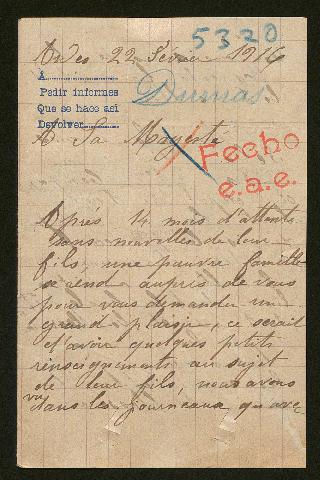 5320
22 Février 1916
A
Pedir informes
Que se haos así
Devolver
Dumas
A Sa Majesté
Fecho
e.a.e.
Après 14 mois d'attente
sans nouvelles de leur
fils, une pauvre famille
se rend auprès de vous
pour vous demander un
grand plaisir, ce serait
d'avoir quelques petits
renseignements au sujet
de leur fils, nous avons
vu dans les journeaux qu avec